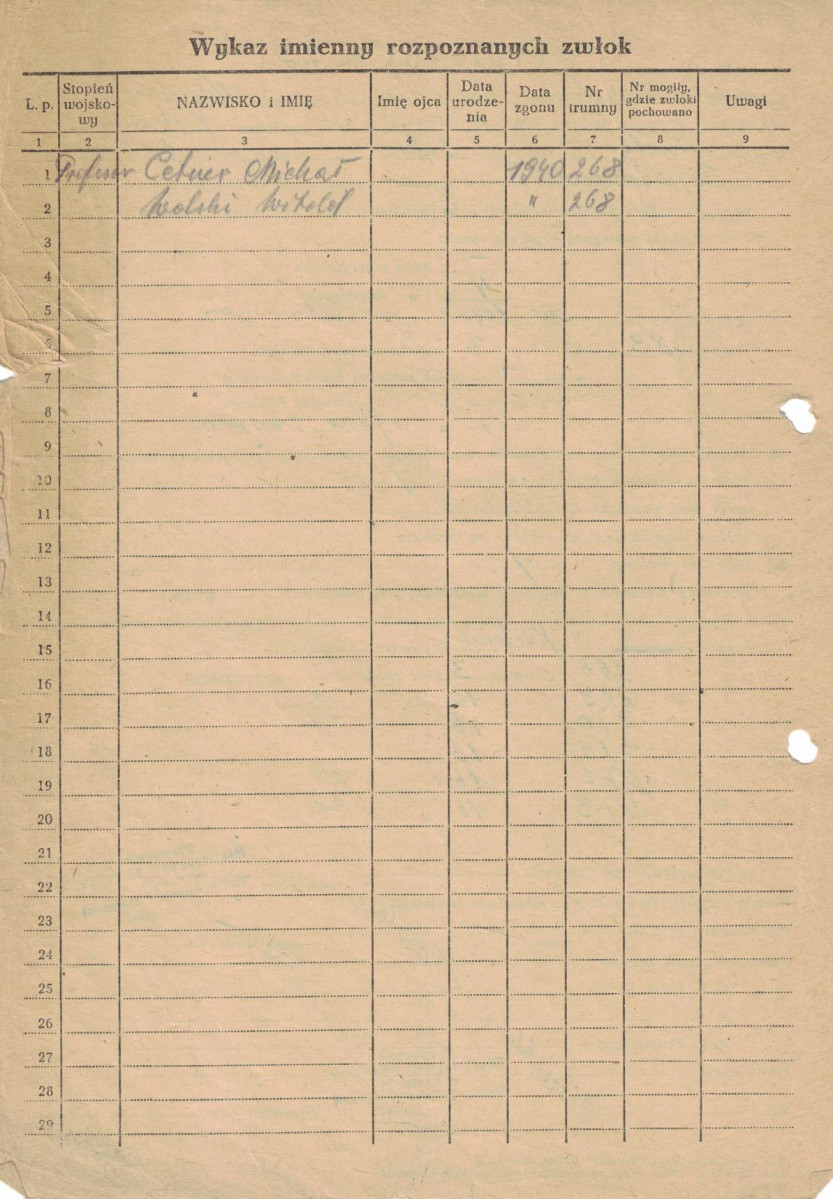 Wykaz imienny rozpoznanych zwłok
L. p. Stopień wojsko-wy NAZWISKO i IMIĘ Imię ojca Data urodze-nia Data zgonu Nr trumny Nr mogiły, gdzie zwłoki pochowano Uwagi
1 2 3 4 5 6 7 8 9
1 Profesor Cetner Michał 1940 268
2 Wolski Witold " 268
3
4
5
6
7
8
9
10
11
12
13
14
15
16
17
18
19
20
21
22
23
24
25
26
27
28
29